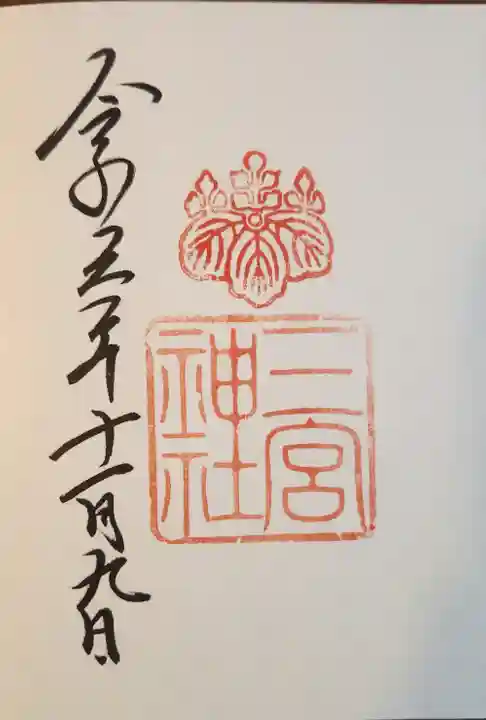 三宮神社
令和五年十一月九日